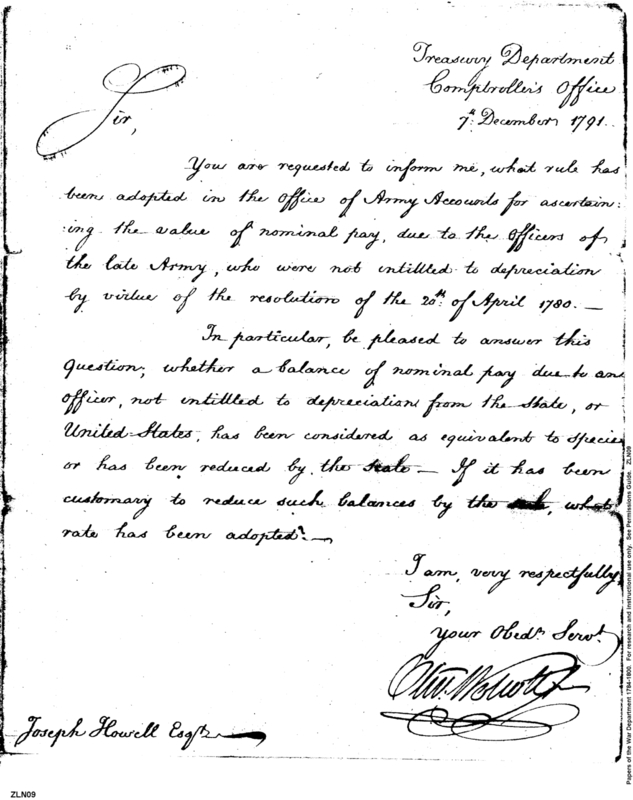 Treasury Department
Comptroller's Office
7th. December 1791.
Sir,
You are requested to inform me, what rule has
been adopted in the Office of Army Accounts for ascertain:
:ing the value of nominal pay, due to the Officers of
the late Army, who were not intitled to depreciation
by virtue of the resolution of the 20th. of April 1780. —
In particular, be pleased to answer this
Question; whether a balance of nominal pay due to an
officer, not intitled to depreciation from the State, or
United States, has been considered as equivalent to specie
or has been reduced by the scale — If it has been
customary to reduce such balances by the scale, what
rate has been adopted? —
I am, very respectfully,
Sir,
your Obedt. Servt.
Oliv. Wolcott Jr
Joseph Howell Esqr.
ZLN09
Papers of the War Department 1784-1800. For research and instructional use only. See Permissions Guide. ZLN09